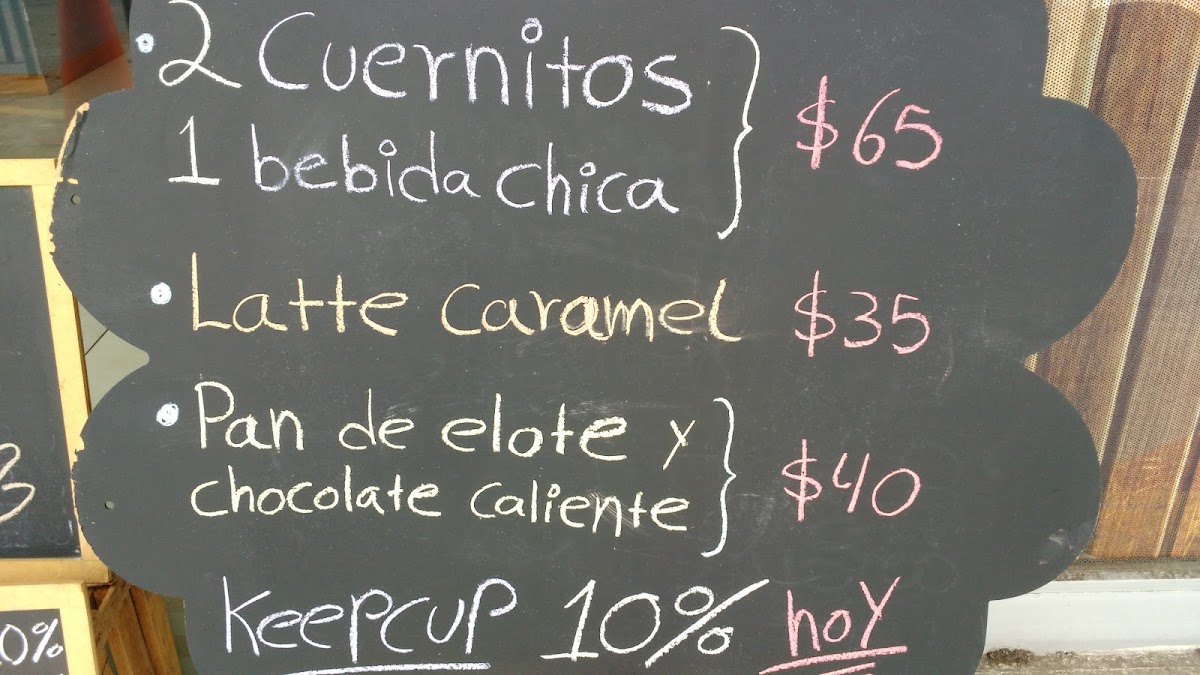 • 2 Cuernitos
1 bebida chica } $65
• Latte caramel $35
• Pan de elote y
chocolate caliente } $40
Keepcup 10% hoy
0%
3